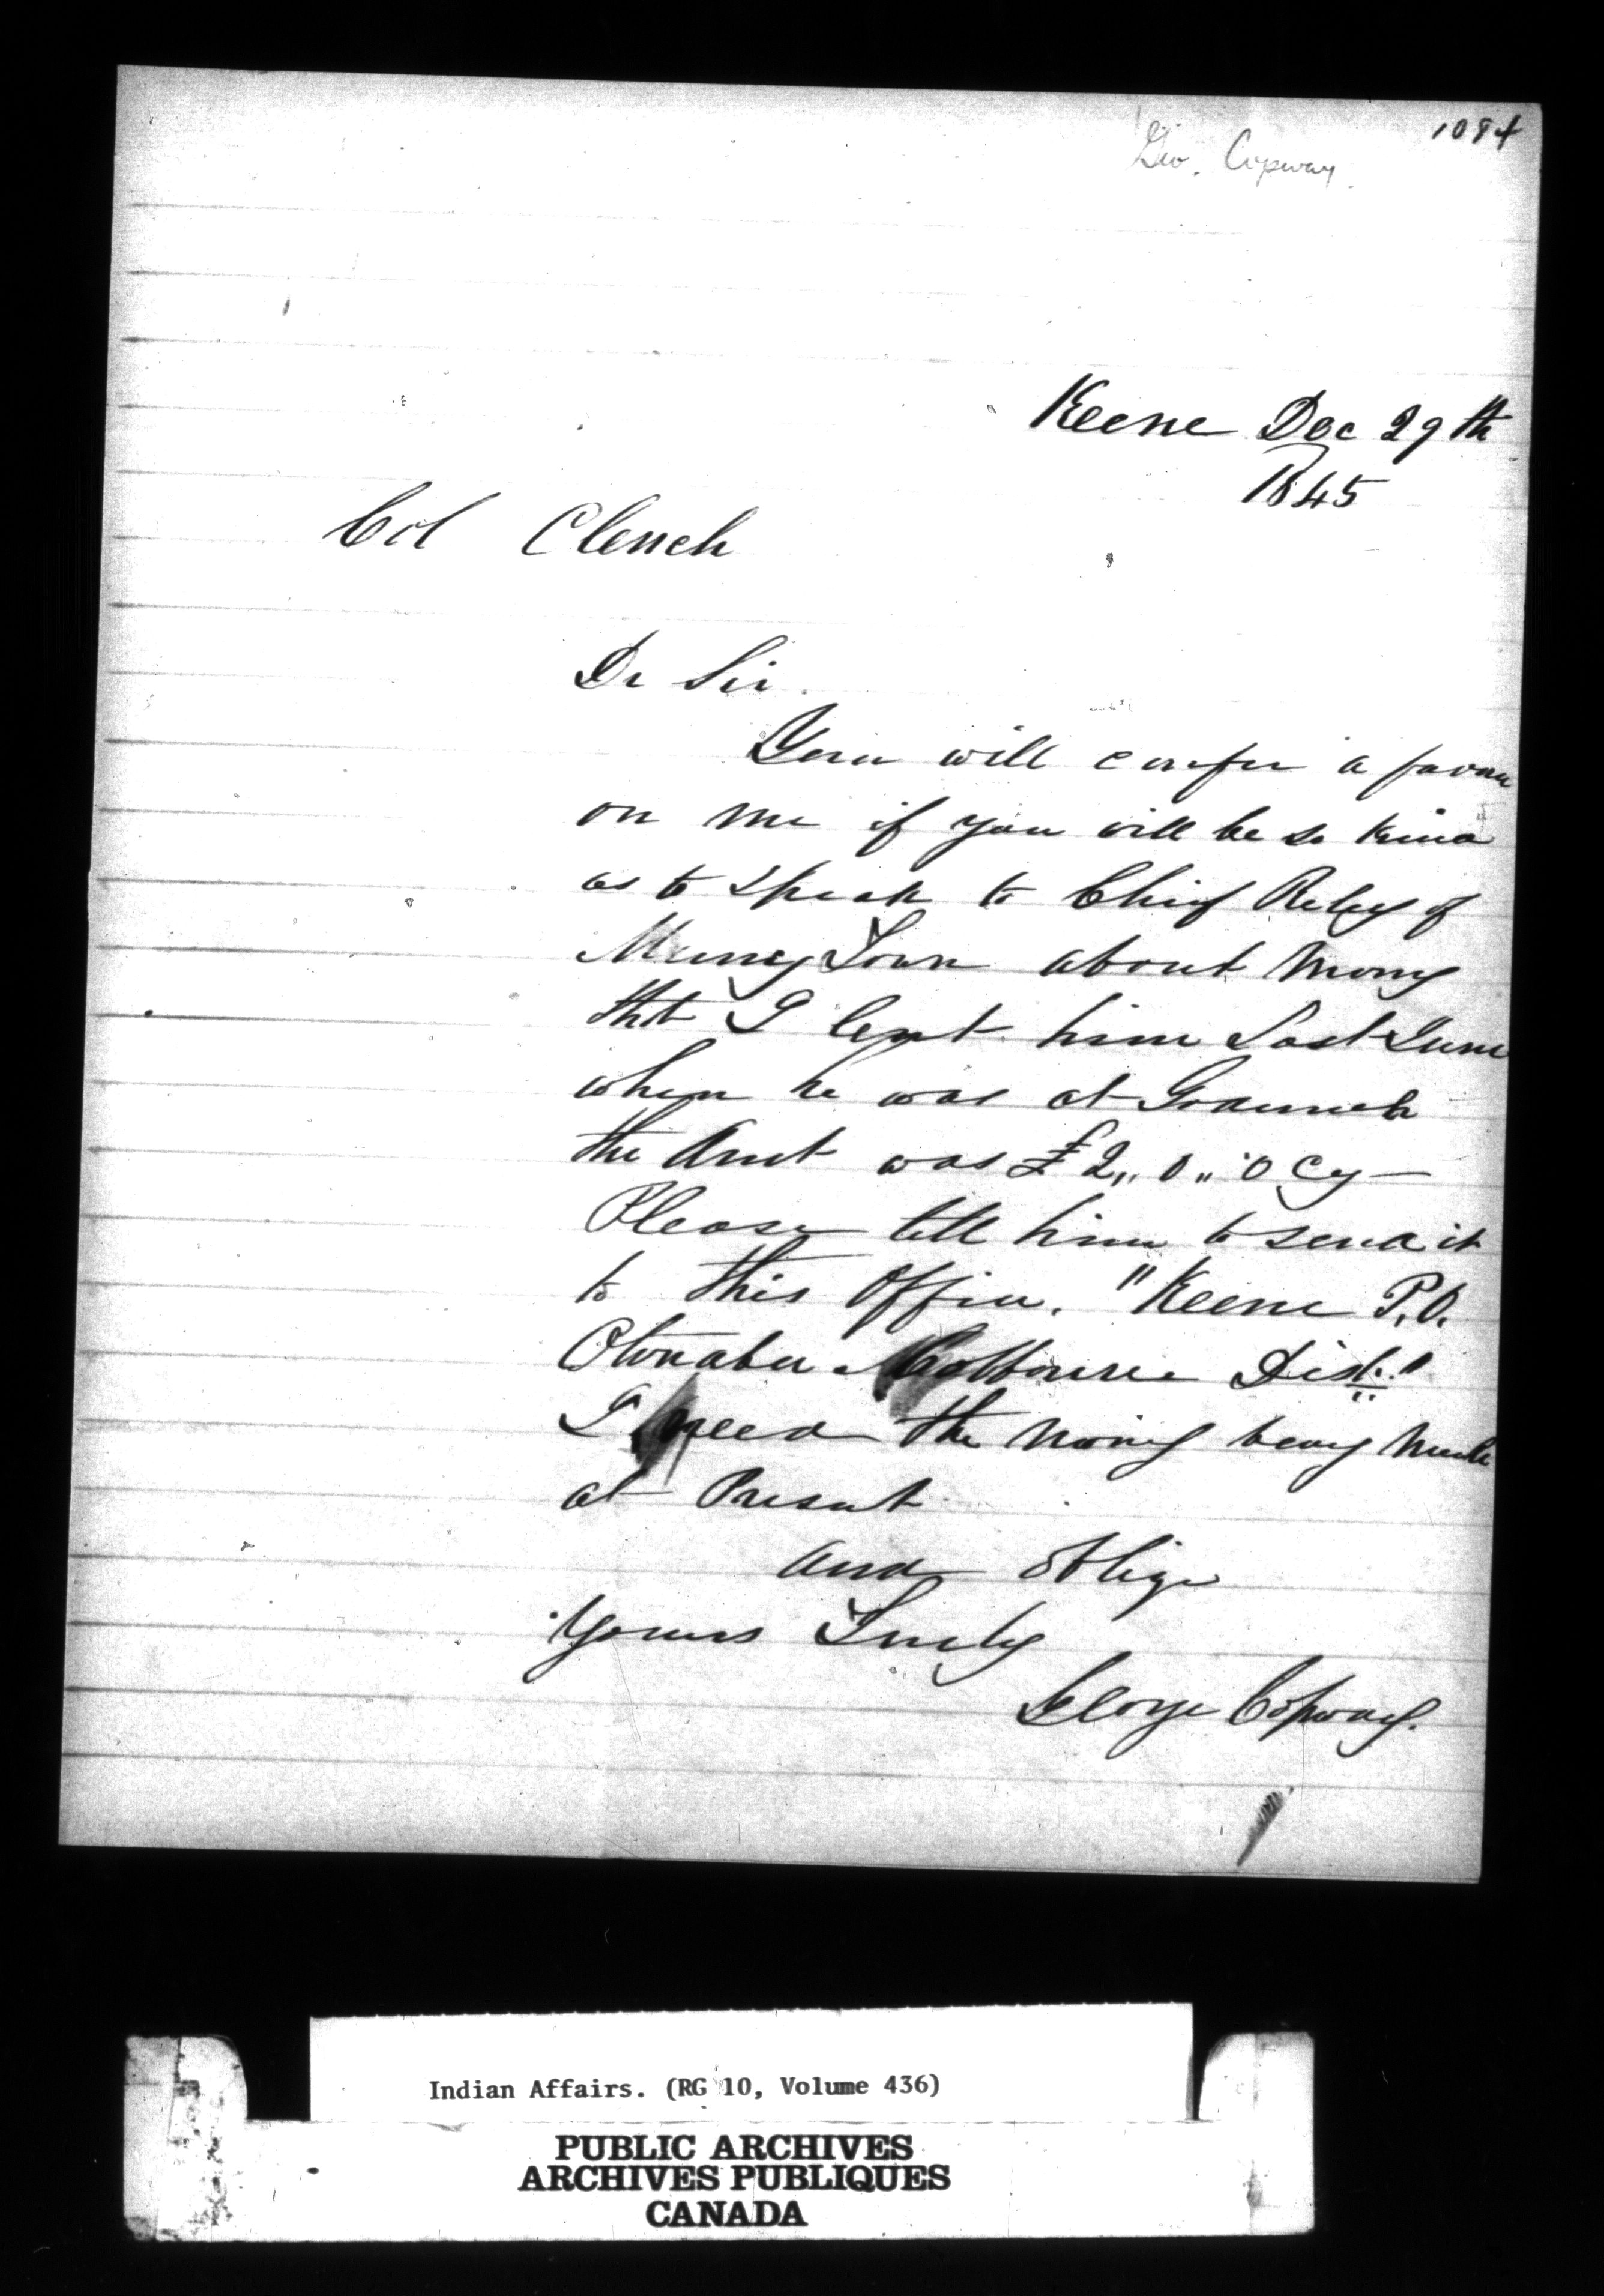 1084
Geo. Copway.
Keene Dec 29th
1845
Col Clench
Dr Sir.
You will confer a favour
on me if you will be so kind
as to speak to Chief Riley of
Muncy Town about money
that I lent him Last June
when he was at
the Amt was £2,, 0,, 0 Cy —
Please tell him to send it
to this Office. "Keene P.O.
Otonabee Colborne Dist."
I need the money very much
at Present
and oblige
Yours Truly
George Copway.
Indian Affairs. (RG 10, Volume 436)
PUBLIC ARCHIVES
ARCHIVES PUBLIQUES
CANADA